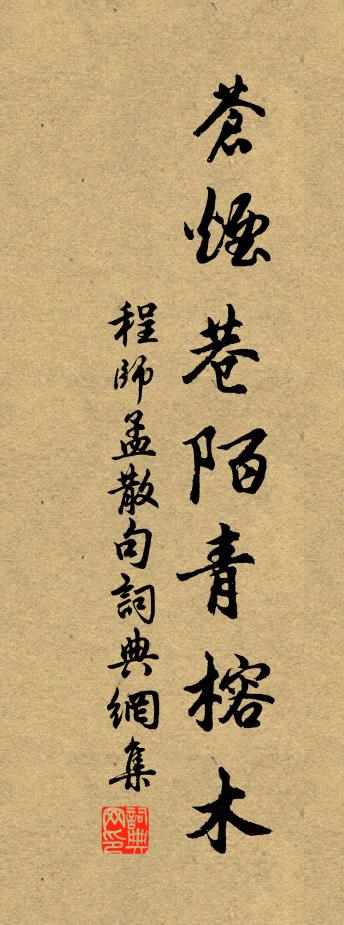 蒼煙巷陌青榕木
程師孟散句詞典網集
詞典网印